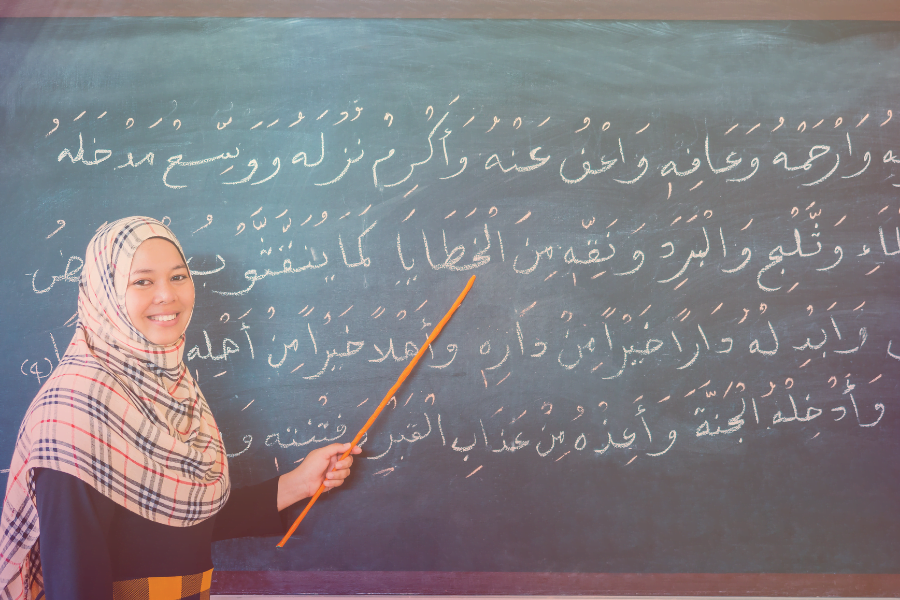 وَارْحَمْهُ وَعَافِهِ وَاعْفُ عَنْهُ وَأَكْرِمْ نُزُلَهُ وَوَسِّعْ مُدْخَلَهُ
وَثَلْجٍ وَالْبَرَدِ وَنَقِّهِ مِنَ الْخَطَايَا كَمَا
وَابْدِلْهُ دَارًا خَيْرًا مِنْ دَارِهِ وَأَهْلًا خَيْرًا مِنْ أَهْلِهِ
وَأَدْخِلْهُ الْجَنَّةَ وَأَعِذْهُ مِنْ عَذَابِ الْقَبْرِ وَفِتْنَتِهِ وَ